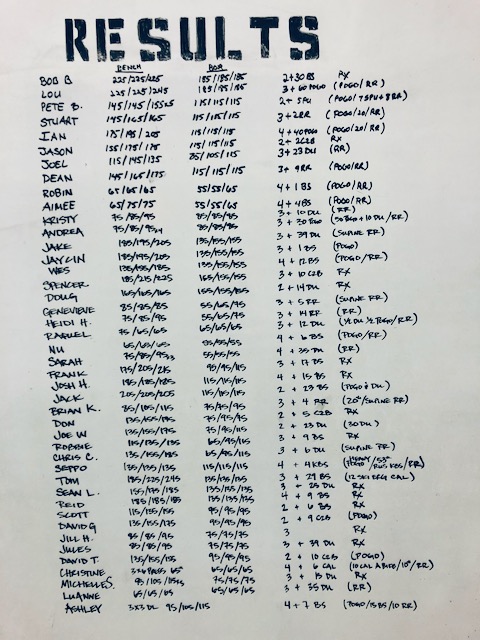 RESULTS
BENCH BOR
BOB B 225/225/225 185/185/185 2+30 BS RX
LOU 225/225/245 185/185/185 3+60 POGO (POGO/RR)
PETE B. 145/145/155x5 115/115/115 2+ 5PU
STUART 145/165/165 115/115/115 3+2RR (POGO/20/RR)
IAN 175/195/205 115/115/115 4+40POGO (POGO/20/RR)
JASON 155/175/175 115/115/115 2+ 2CZB RX
JOEL 115/145/135 85/105/115 3+23 DU (RR)
DEAN 145/165/175 115/115/115 3+ 9RR (POGO/RR)
ROBIN 65/65/65 55/55/65 4+1 BS (POGO/RR)
AIMEE 65/75/75 55/55/65 4+4BS (POGO/RR)
KRISTY 75/85/95 85/85/85 3+10 DU (RR)
ANDREA 75/85/95 85/85/85 3+30 POGO
JAKE 185/195/205 135/155/155 3+39 DU (SUPINE RR)
JAYLIN 185/195/205 135/155/155 3+1 BS (POGO)
WES 135/155/185 135/155/155 4+12 BS (POGO/RR)
SPENCER 185/215/225 155/155/155 3+10 CZB RX
DOUG 165/165/165 155/155/155 2+14 DU RX
GENEVIEVE 85/85/85 55/65/75 3+5 RR (SUPINE RR)
HEIDI H. 75/85/95 55/65/75 3+14 RR (RR)
RAQUEL 75/65/65 65/65/65 3+12 DU (½ DU ½ POGO/RR)
NU 65/65/65 55/55/55 4+6 BS (POGO/RR)
SARAH 75/85/95 55/55/55 4+35 DU (RR)
FRANK 175/205/215 95/95/115 3+17 BS RX
JOSH H. 185/185/185 115/115/115 4+15 BS RX
JACK 205/205/205 115/115/115 2+23 BS
BRIAN K. 85/105/115 75/75/95 3+4 RR (20"/SUPINE RR)
DON 135/155/175 75/95/95 2+5 CZB RX
JOE W 135/155/175 75/95/95 2+23 DU (30 DU)
ROBBIE 115/135/135 65/95/115 3+9 BS RX
CHRIS C. 135/155/185 65/95/115 3+6 DU (SUPINE RR)
SEPPO 135/135/135 115/115/115 4+4KBS
TOM 185/225/245 135/135/135 3+29 BS (12 SKI ERG CAL)
SEAN L. 155/175/185 135/135/135 3+25 DU RX
REID 185/185/185 135/135/135 4+9 BS RX
SCOTT 115/135/155 95/95/95 2+6 BS RX
DAVID G 135/155/175 95/95/95 2+9 CZB (POGO)
JILL H. 85/85/95 75/75/75 3 RX
JULES 85/85/95 75/75/75 3+39 DU RX
DAVID T 135/155/155 95/95/95 2+10 CZB (POGO)
CHRISTINE 65/65/65 4+6 CAL
MICHELLE S. 75/75/75 3+13 DU RX
LUANNE 65/65/65 65/65/65 3+35 DU (RR)
ASHLEY 3x3 DL 95/105/115 4+7 BS (POGO/15BS/10RR)